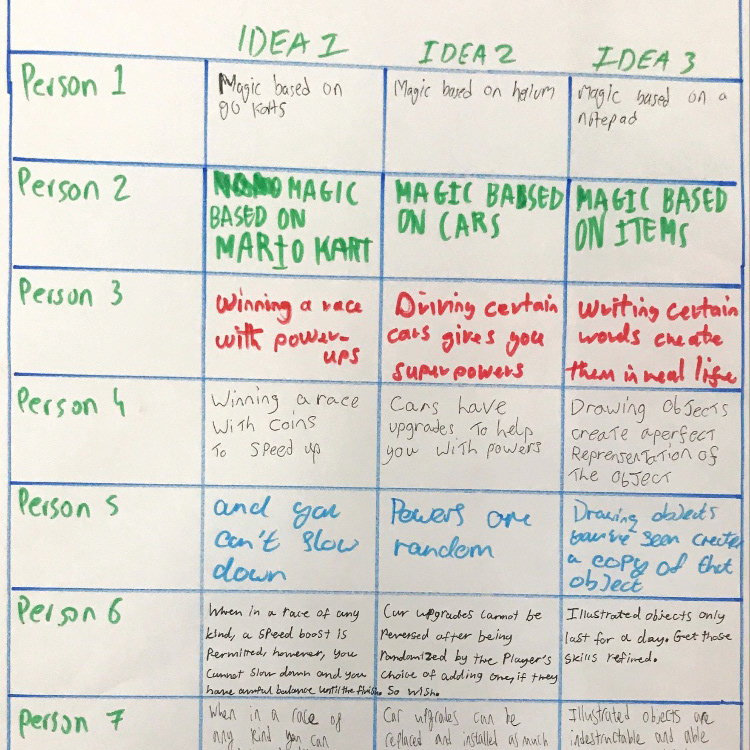 IDEA 1 IDEA 2 IDEA 3
Person 1
Magic based on
go karts
Magic based on helium
Magic based on a
notepad
Person 2
MAGIC
BASED ON
MARIO KART
MAGIC BASSED
ON CARS
MAGIC BASED
ON ITEMS
Person 3
Winning a race
with power-
ups
Driving certain
cars gives you
superpowers
Writing certain
words create
them in real life
Person 4
Winning a race
With coins
To speed up
Cars have
upgrades To help
you with powers
Drawing objects
create a perfect
Reprensentation of
The object
Person 5
and you
can't slow
down
Powers are
random
Drawing objects
you've seen creates
a copy of that
object
Person 6
When in a race of any
kind, a speed boost is
Permitted, however, you
Cannot slow down and you
have awful balance until the finish.
Car upgrades cannot be
Reversed after being
Randomized by the Player's
choice of adding one, if they
so wish.
Illustrated objects only
last for a day. Get those
skills refined.
Person 7
When in a race of
any kind you can
Car upgrades can be
replaced and installed as much
Illustrated objects are
indestructable and able